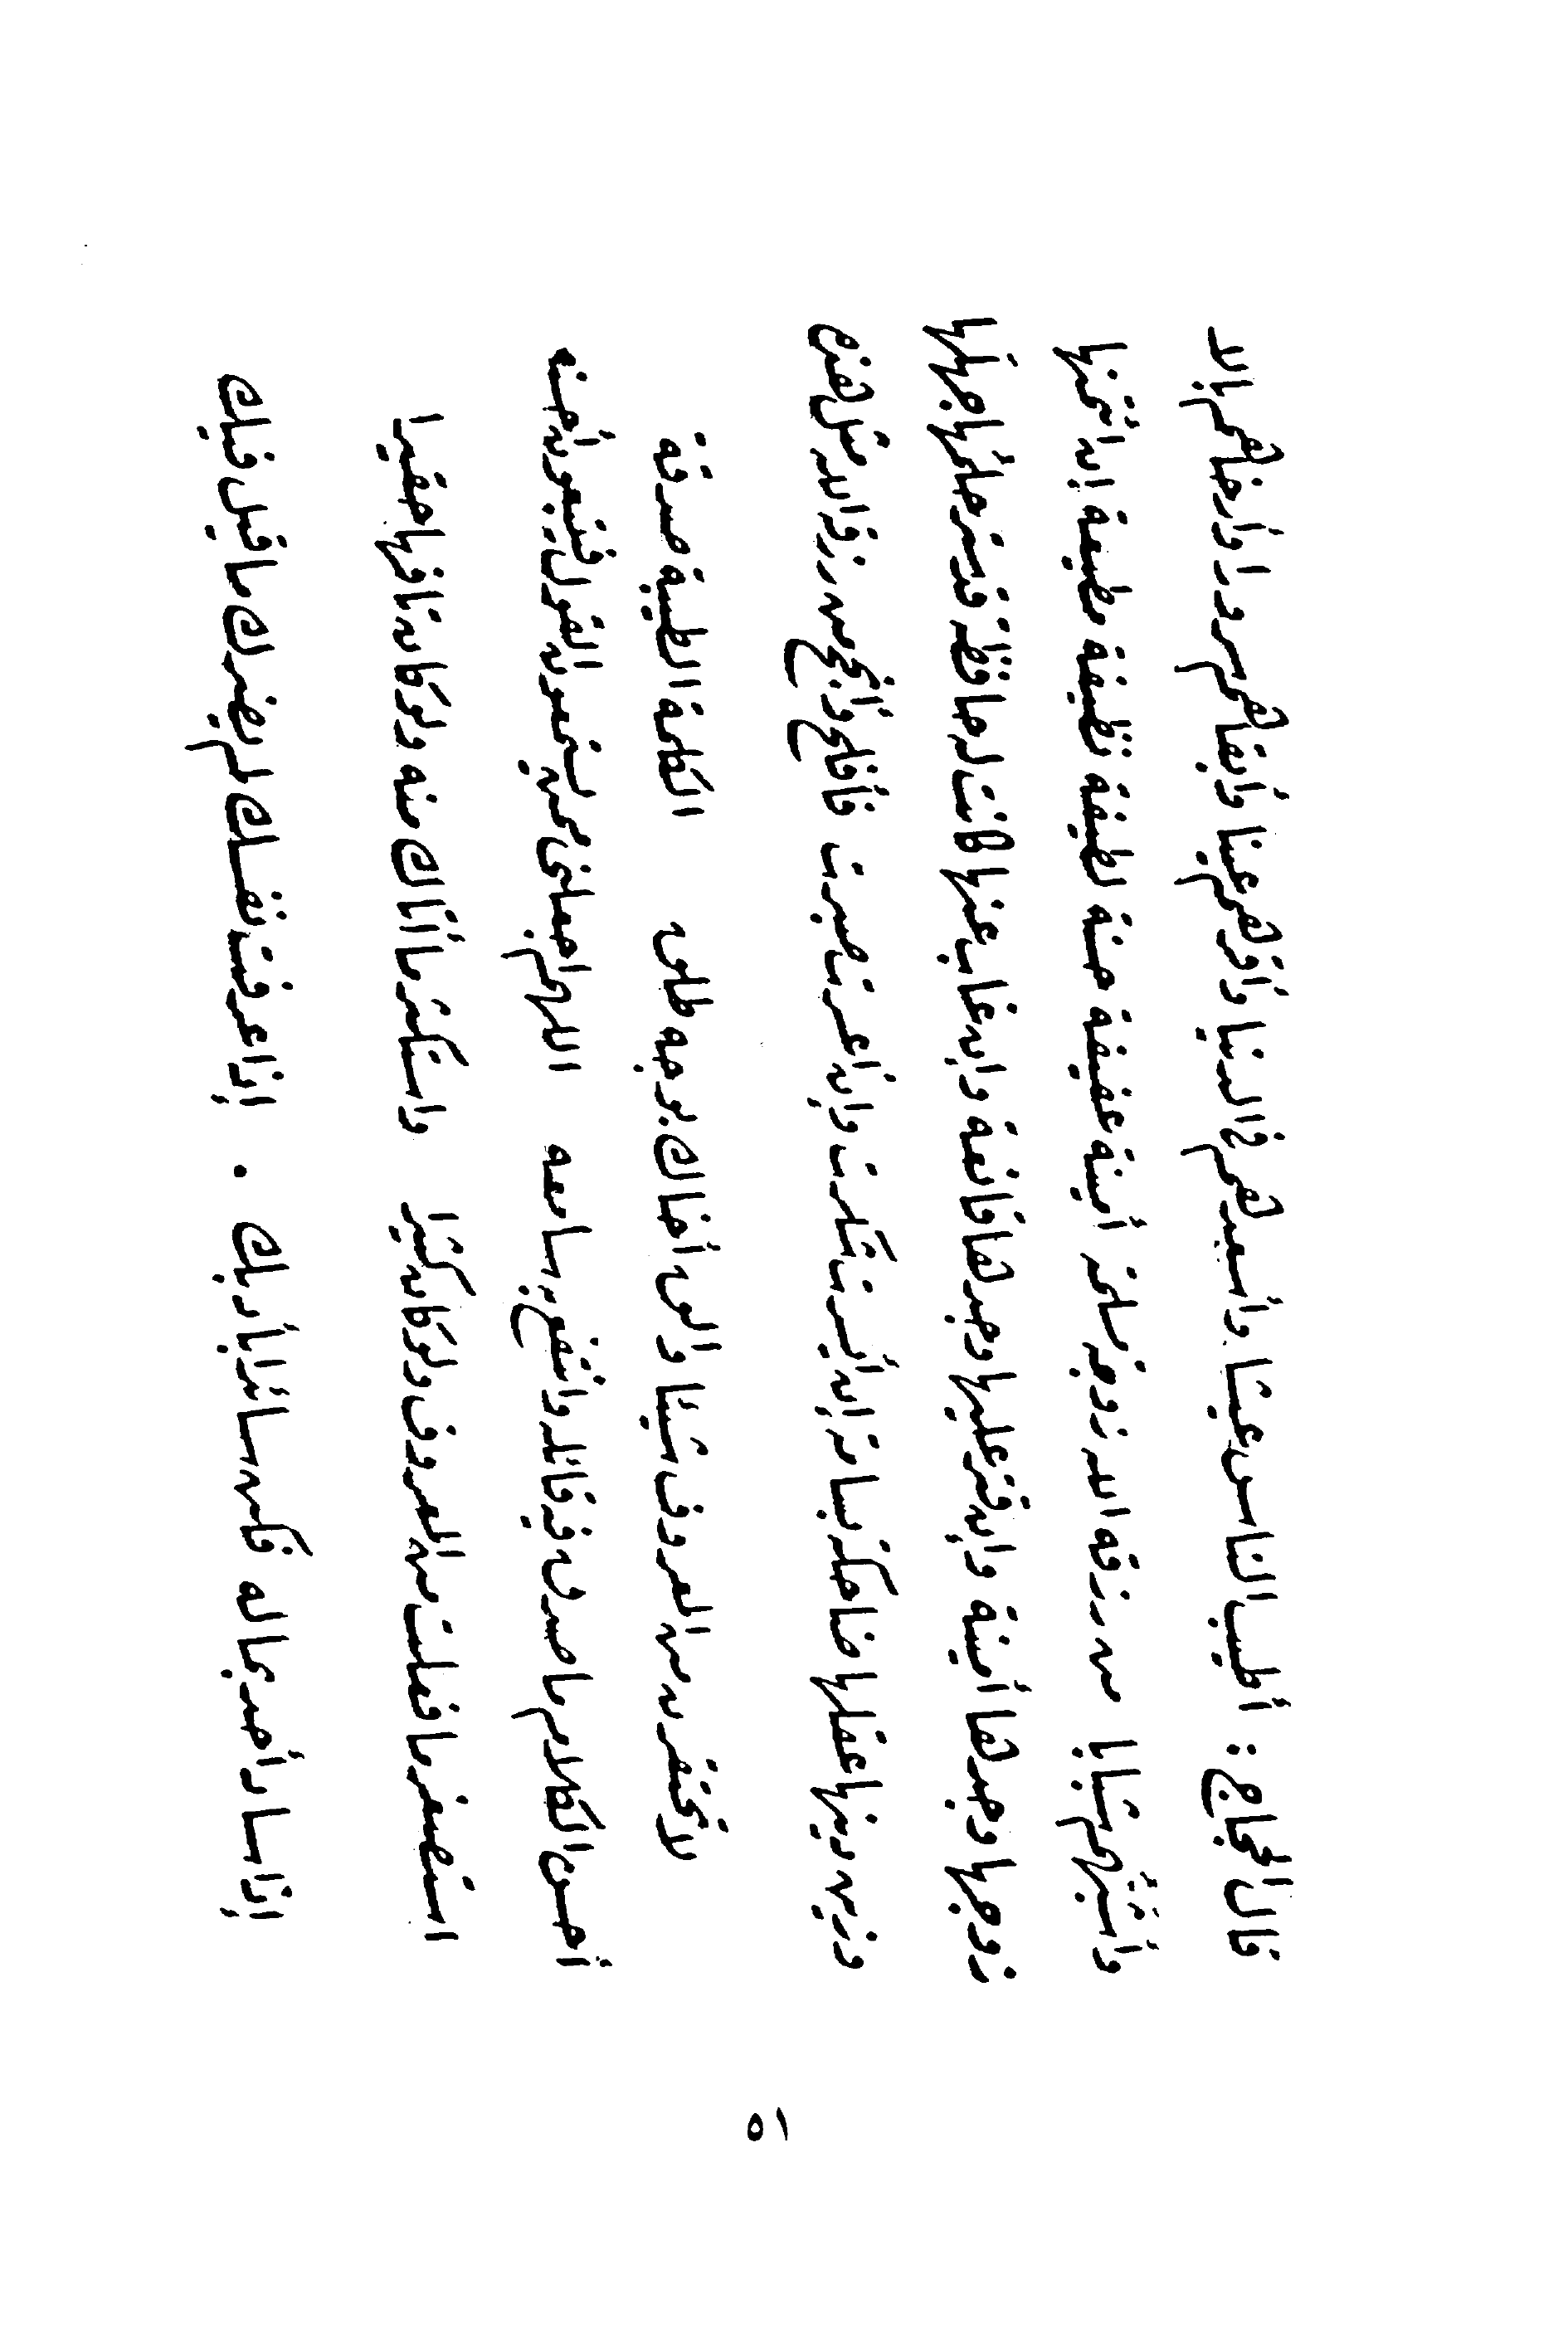 قال الحجاج : أطيب الناس عيشا وأسعدهم في الدنيا وأقرهم عينا وأبقاهم سرورا وأرضاهم بالا
وأشبهم شبابا من رزقه الله زوجة مسلمة أمينة عفيفة حسنة لطيفة نظيفة مطيعة إن ائتمنها
زوجها وجدها أمينة وإن قتر عليها وجدها قانعة وإن غاب عنها كانت له حافظة قد ستر حلمها جهلها
وزين دينها عقلها ضاحكة بسامة إن أيسرت شكرت وإن أعسرت صبرت فأفلح وأنجح من رزق الله مثل هذه
لا تحقرن من المعروف شيئا والق أخاك بوجه طلق الكلمة الطيبة صدقة
أحسن الكلام ما صدق فيه قائله وانتفع به سامعه اللهم اجعلني ممن يستمعون القول فيتبعون أحسنه
استصغر ما فعلت من المعروف ولو كان كثيرا واستكثر ما أتاك منه ولو كان تافها حقيرا
إذا سار أحد بماله فكن سائرا بأدبك . إذا عرفت نفسك لم يضرك ما قيل فيك
٥١